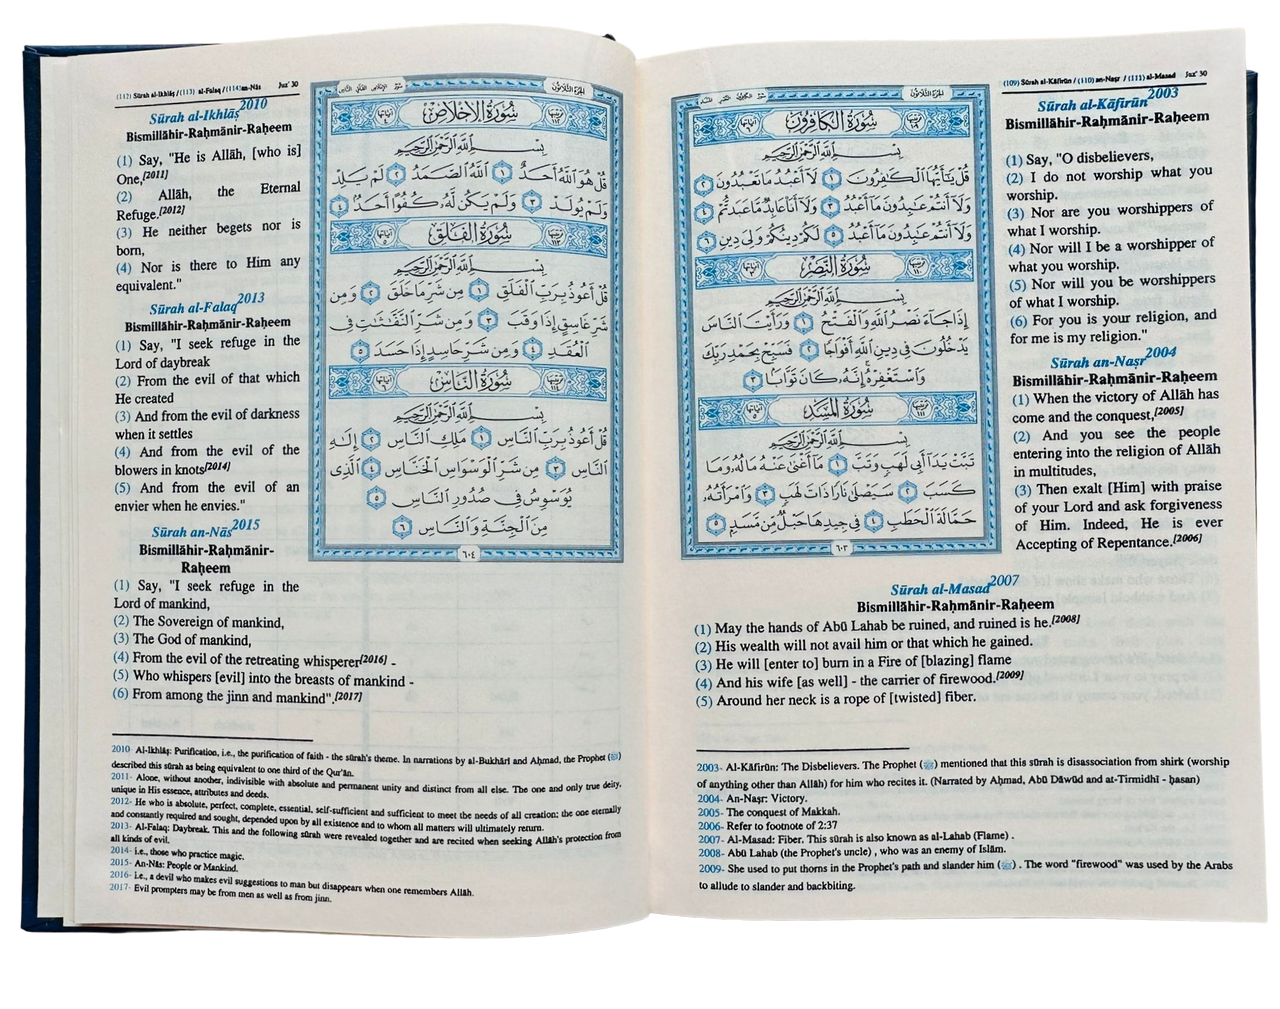 (112) Sūrah al-Ikhlāṣ / (113) al-Falaq / (114) an-Nās Juz' 30
Sūrah al-Ikhlāṣ2010
Bismillāhir-Raḥmānir-Raḥeem
(1) Say, "He is Allāh, [who is]
One,[2011]
(2) Allāh, the Eternal
Refuge.[2012]
(3) He neither begets nor is
born,
(4) Nor is there to Him any
equivalent."
Sūrah al-Falaq2013
Bismillāhir-Raḥmānir-Raḥeem
(1) Say, "I seek refuge in the
Lord of daybreak
(2) From the evil of that which
He created
(3) And from the evil of darkness
when it settles
(4) And from the evil of the
blowers in knots[2014]
(5) And from the evil of an
envier when he envies."
Sūrah an-Nās2015
Bismillāhir-Raḥmānir-
Raḥeem
(1) Say, "I seek refuge in the
Lord of mankind,
(2) The Sovereign of mankind,
(3) The God of mankind,
(4) From the evil of the retreating whisperer[2016] -
(5) Who whispers [evil] into the breasts of mankind -
(6) From among the jinn and mankind".[2017]
الجزء الثلاثون
سورة الإخلاص
ترتيبها ١١٢ آياتها ٤
بِسْمِ اللَّهِ الرَّحْمَٰنِ الرَّحِيمِ
قُلْ هُوَ اللَّهُ أَحَدٌ ١ اللَّهُ الصَّمَدُ ٢ لَمْ يَلِدْ
وَلَمْ يُولَدْ ٣ وَلَمْ يَكُن لَّهُ كُفُوًا أَحَدٌ ٤
سورة الفلق
ترتيبها ١١٣ آياتها ٥
بِسْمِ اللَّهِ الرَّحْمَٰنِ الرَّحِيمِ
قُلْ أَعُوذُ بِرَبِّ الْفَلَقِ ١ مِن شَرِّ مَا خَلَقَ ٢ وَمِن
شَرِّ غَاسِقٍ إِذَا وَقَبَ ٣ وَمِن شَرِّ النَّفَّاثَاتِ فِي
الْعُقَدِ ٤ وَمِن شَرِّ حَاسِدٍ إِذَا حَسَدَ ٥
سورة الناس
ترتيبها ١١٤ آياتها ٦
بِسْمِ اللَّهِ الرَّحْمَٰنِ الرَّحِيمِ
قُلْ أَعُوذُ بِرَبِّ النَّاسِ ١ مَلِكِ النَّاسِ ٢ إِلَٰهِ
النَّاسِ ٣ مِن شَرِّ الْوَسْوَاسِ الْخَنَّاسِ ٤ الَّذِي
يُوَسْوِسُ فِي صُدُورِ النَّاسِ ٥
مِنَ الْجِنَّةِ وَالنَّاسِ ٦
٦٠٤
2010- Al-Ikhlāṣ: Purification, i.e., the purification of faith - the sūrah's theme. In narrations by al-Bukhārī and Aḥmad, the Prophet (ﷺ)
described this sūrah as being equivalent to one third of the Qur'ān.
2011- Alone, without another, indivisible with absolute and permanent unity and distinct from all else. The one and only true deity,
unique in His essence, attributes and deeds.
2012- He who is absolute, perfect, complete, essential, self-sufficient and sufficient to meet the needs of all creation; the one eternally
and constantly required and sought, depended upon by all existence and to whom all matters will ultimately return.
2013- Al-Falaq: Daybreak. This and the following sūrah were revealed together and are recited when seeking Allāh's protection from
all kinds of evil.
2014- i.e., those who practice magic.
2015- An-Nās: People or Mankind.
2016- i.e., a devil who makes evil suggestions to man but disappears when one remembers Allāh.
2017- Evil prompters may be from men as well as from jinn.
(109) Sūrah al-Kāfirūn / (110) an-Naṣr / (111) al-Masad Juz' 30
الجزء الثلاثون
سورة الكافرون
ترتيبها ١٠٩ آياتها ٦
بِسْمِ اللَّهِ الرَّحْمَٰنِ الرَّحِيمِ
قُلْ يَا أَيُّهَا الْكَافِرُونَ ١ لَا أَعْبُدُ مَا تَعْبُدُونَ ٢
وَلَا أَنتُمْ عَابِدُونَ مَا أَعْبُدُ ٣ وَلَا أَنَا عَابِدٌ مَّا عَبَدتُّمْ ٤
وَلَا أَنتُمْ عَابِدُونَ مَا أَعْبُدُ ٥ لَكُمْ دِينُكُمْ وَلِيَ دِينِ ٦
سورة النصر
ترتيبها ١١٠ آياتها ٣
بِسْمِ اللَّهِ الرَّحْمَٰنِ الرَّحِيمِ
إِذَا جَاءَ نَصْرُ اللَّهِ وَالْفَتْحُ ١ وَرَأَيْتَ النَّاسَ
يَدْخُلُونَ فِي دِينِ اللَّهِ أَفْوَاجًا ٢ فَسَبِّحْ بِحَمْدِ رَبِّكَ
وَاسْتَغْفِرْهُ إِنَّهُ كَانَ تَوَّابًا ٣
سورة المسد
ترتيبها ١١١ آياتها ٥
بِسْمِ اللَّهِ الرَّحْمَٰنِ الرَّحِيمِ
تَبَّتْ يَدَا أَبِي لَهَبٍ وَتَبَّ ١ مَا أَغْنَىٰ عَنْهُ مَالُهُ وَمَا
كَسَبَ ٢ سَيَصْلَىٰ نَارًا ذَاتَ لَهَبٍ ٣ وَامْرَأَتُهُ
حَمَّالَةَ الْحَطَبِ ٤ فِي جِيدِهَا حَبْلٌ مِّن مَّسَدٍ ٥
٦٠٣
Sūrah al-Kāfirūn2003
Bismillāhir-Raḥmānir-Raḥeem
(1) Say, "O disbelievers,
(2) I do not worship what you
worship.
(3) Nor are you worshippers of
what I worship.
(4) Nor will I be a worshipper of
what you worship.
(5) Nor will you be worshippers
of what I worship.
(6) For you is your religion, and
for me is my religion."
Sūrah an-Naṣr2004
Bismillāhir-Raḥmānir-Raḥeem
(1) When the victory of Allāh has
come and the conquest,[2005]
(2) And you see the people
entering into the religion of Allāh
in multitudes,
(3) Then exalt [Him] with praise
of your Lord and ask forgiveness
of Him. Indeed, He is ever
Accepting of Repentance.[2006]
Sūrah al-Masad2007
Bismillāhir-Raḥmānir-Raḥeem
(1) May the hands of Abū Lahab be ruined, and ruined is he.[2008]
(2) His wealth will not avail him or that which he gained.
(3) He will [enter to] burn in a Fire of [blazing] flame
(4) And his wife [as well] - the carrier of firewood.[2009]
(5) Around her neck is a rope of [twisted] fiber.
2003- Al-Kāfirūn: The Disbelievers. The Prophet (ﷺ) mentioned that this sūrah is disassociation from shirk (worship
of anything other than Allāh) for him who recites it. (Narrated by Aḥmad, Abū Dāwūd and at-Tirmidhī - ḥasan)
2004- An-Naṣr: Victory.
2005- The conquest of Makkah.
2006- Refer to footnote of 2:37
2007- Al-Masad: Fiber. This sūrah is also known as al-Lahab (Flame) .
2008- Abū Lahab (the Prophet's uncle) , who was an enemy of Islām.
2009- She used to put thorns in the Prophet's path and slander him (ﷺ) . The word "firewood" was used by the Arabs
to allude to slander and backbiting.